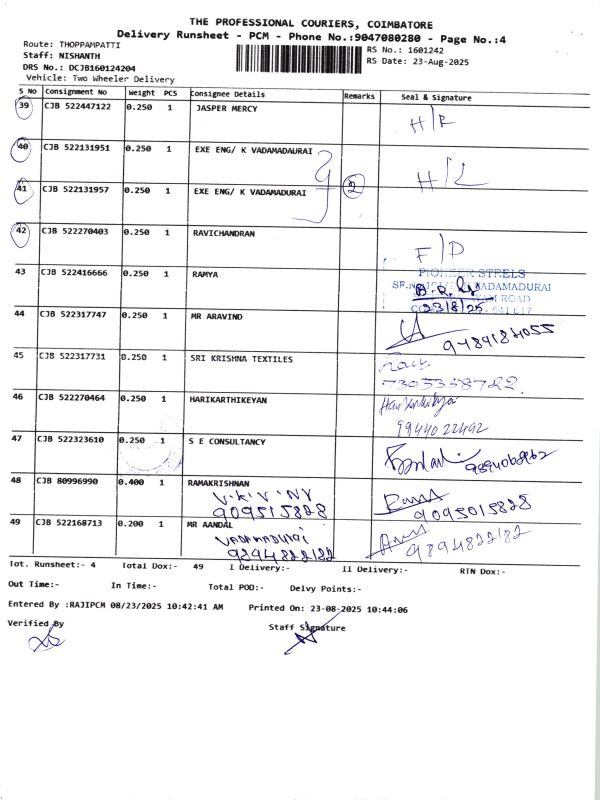 THE PROFESSIONAL COURIERS, COIMBATORE
Delivery Runsheet - PCM - Phone No.:9047080280 - Page No.:4
Route: THOPPAMPATTI
RS No.: 1601242
Staff: NISHANTH
RS Date: 23-Aug-2025
DRS No.: DCJB160124204
Vehicle: Two Wheeler Delivery
S No Consignment No Weight PCS Consignee Details Remarks Seal & Signature
39 CJB 522447122 0.250 1 JASPER MERCY H/R
40 CJB 522131951 0.250 1 EXE ENG/ K VADAMADAURAI
41 CJB 522131957 0.250 1 EXE ENG/ K VADAMADURAI 2 H/L
42 CJB 522270403 0.250 1 RAVICHANDRAN F/D
43 CJB 522416666 0.250 1 RAMYA
PIONEER STEELS
VADAMADURAI
ROAD
23/8/25
44 CJB 522317747 0.250 1 MR ARAVIND
9489184055
45 CJB 522317731 0.250 1 SRI KRISHNA TEXTILES
7305358722
46 CJB 522270464 0.250 1 HARIKARTHIKEYAN
9944022492
47 CJB 522323610 0.250 1 S E CONSULTANCY
48 CJB 80996990 0.400 1 RAMAKRISHNAN
V.K.V. NV
909515828
9095015828
49 CJB 522168713 0.200 1 MR AANDAL
VADAMADURAI
9894822182
9894822182
Tot. Runsheet:- 4 Total Dox:- 49 I Delivery:- II Delivery:- RTN Dox:-
Out Time:- In Time:- Total POD:- Delvy Points:-
Entered By :RAJIPCM 08/23/2025 10:42:41 AM Printed On: 23-08-2025 10:44:06
Verified By
Staff Signature